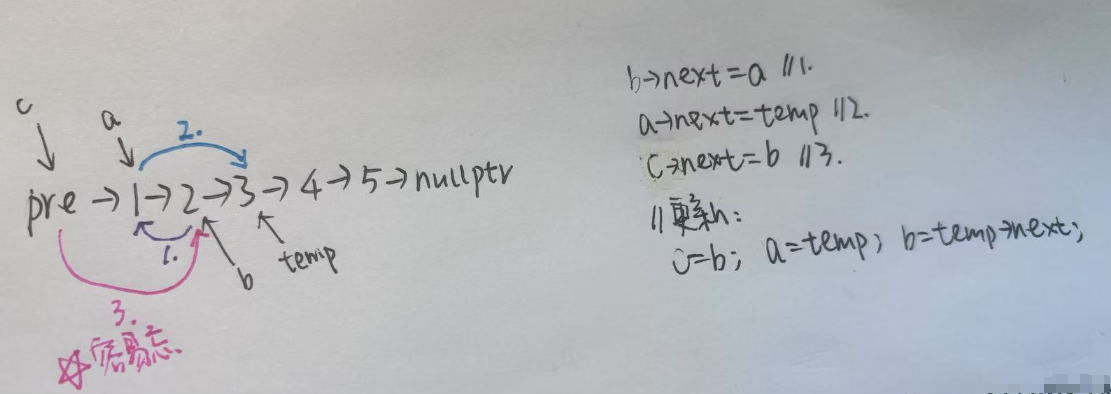 c
a
2.
pre→1→2→3→4→5→nullptr
1.
b
temp
3.
☆容易忘
b→next=a //1.
a→next=temp //2.
c→next=b //3.
//更新:
c=b; a=temp; b=temp→next;